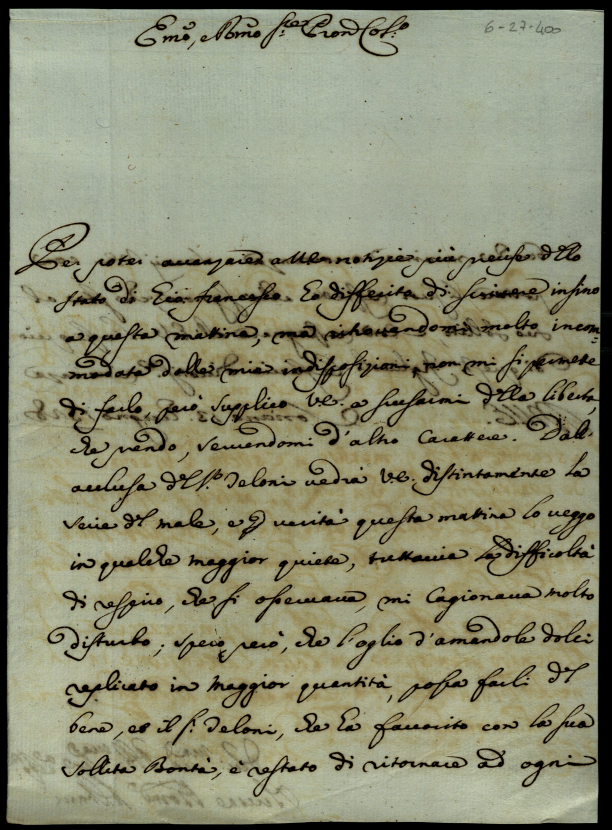 Emo, e Rmo Sre Pron Colo
6-27-400
Per poter avanzare a V.E. notizie più precise dello
stato di Gio: Francesco ho differito di scrivere insino
a questa mattina, mà ritrovandomi molto incom=
modata dalle mie indisposizioni, non mi si permette
di farlo, però supplico V.E. a scusarmi della libertà,
che prendo, servendomi d'altro Carattere. Dall'
acclusa del Sr Deloni vedrà V.E. distintamente la
serie del male, e per verità questa mattina lo veggo
in qualche maggior quiete, tuttavia la difficoltà
di respiro, che si osservava, mi Cagionava molto
disturbo; spero però, che l'oglio d'amandole dolci
replicato in maggior quantità, possa farli del
bene, et il Sr Deloni, che hà favorito con la sua
sollita Bontà, è restato di ritornare ad ogni